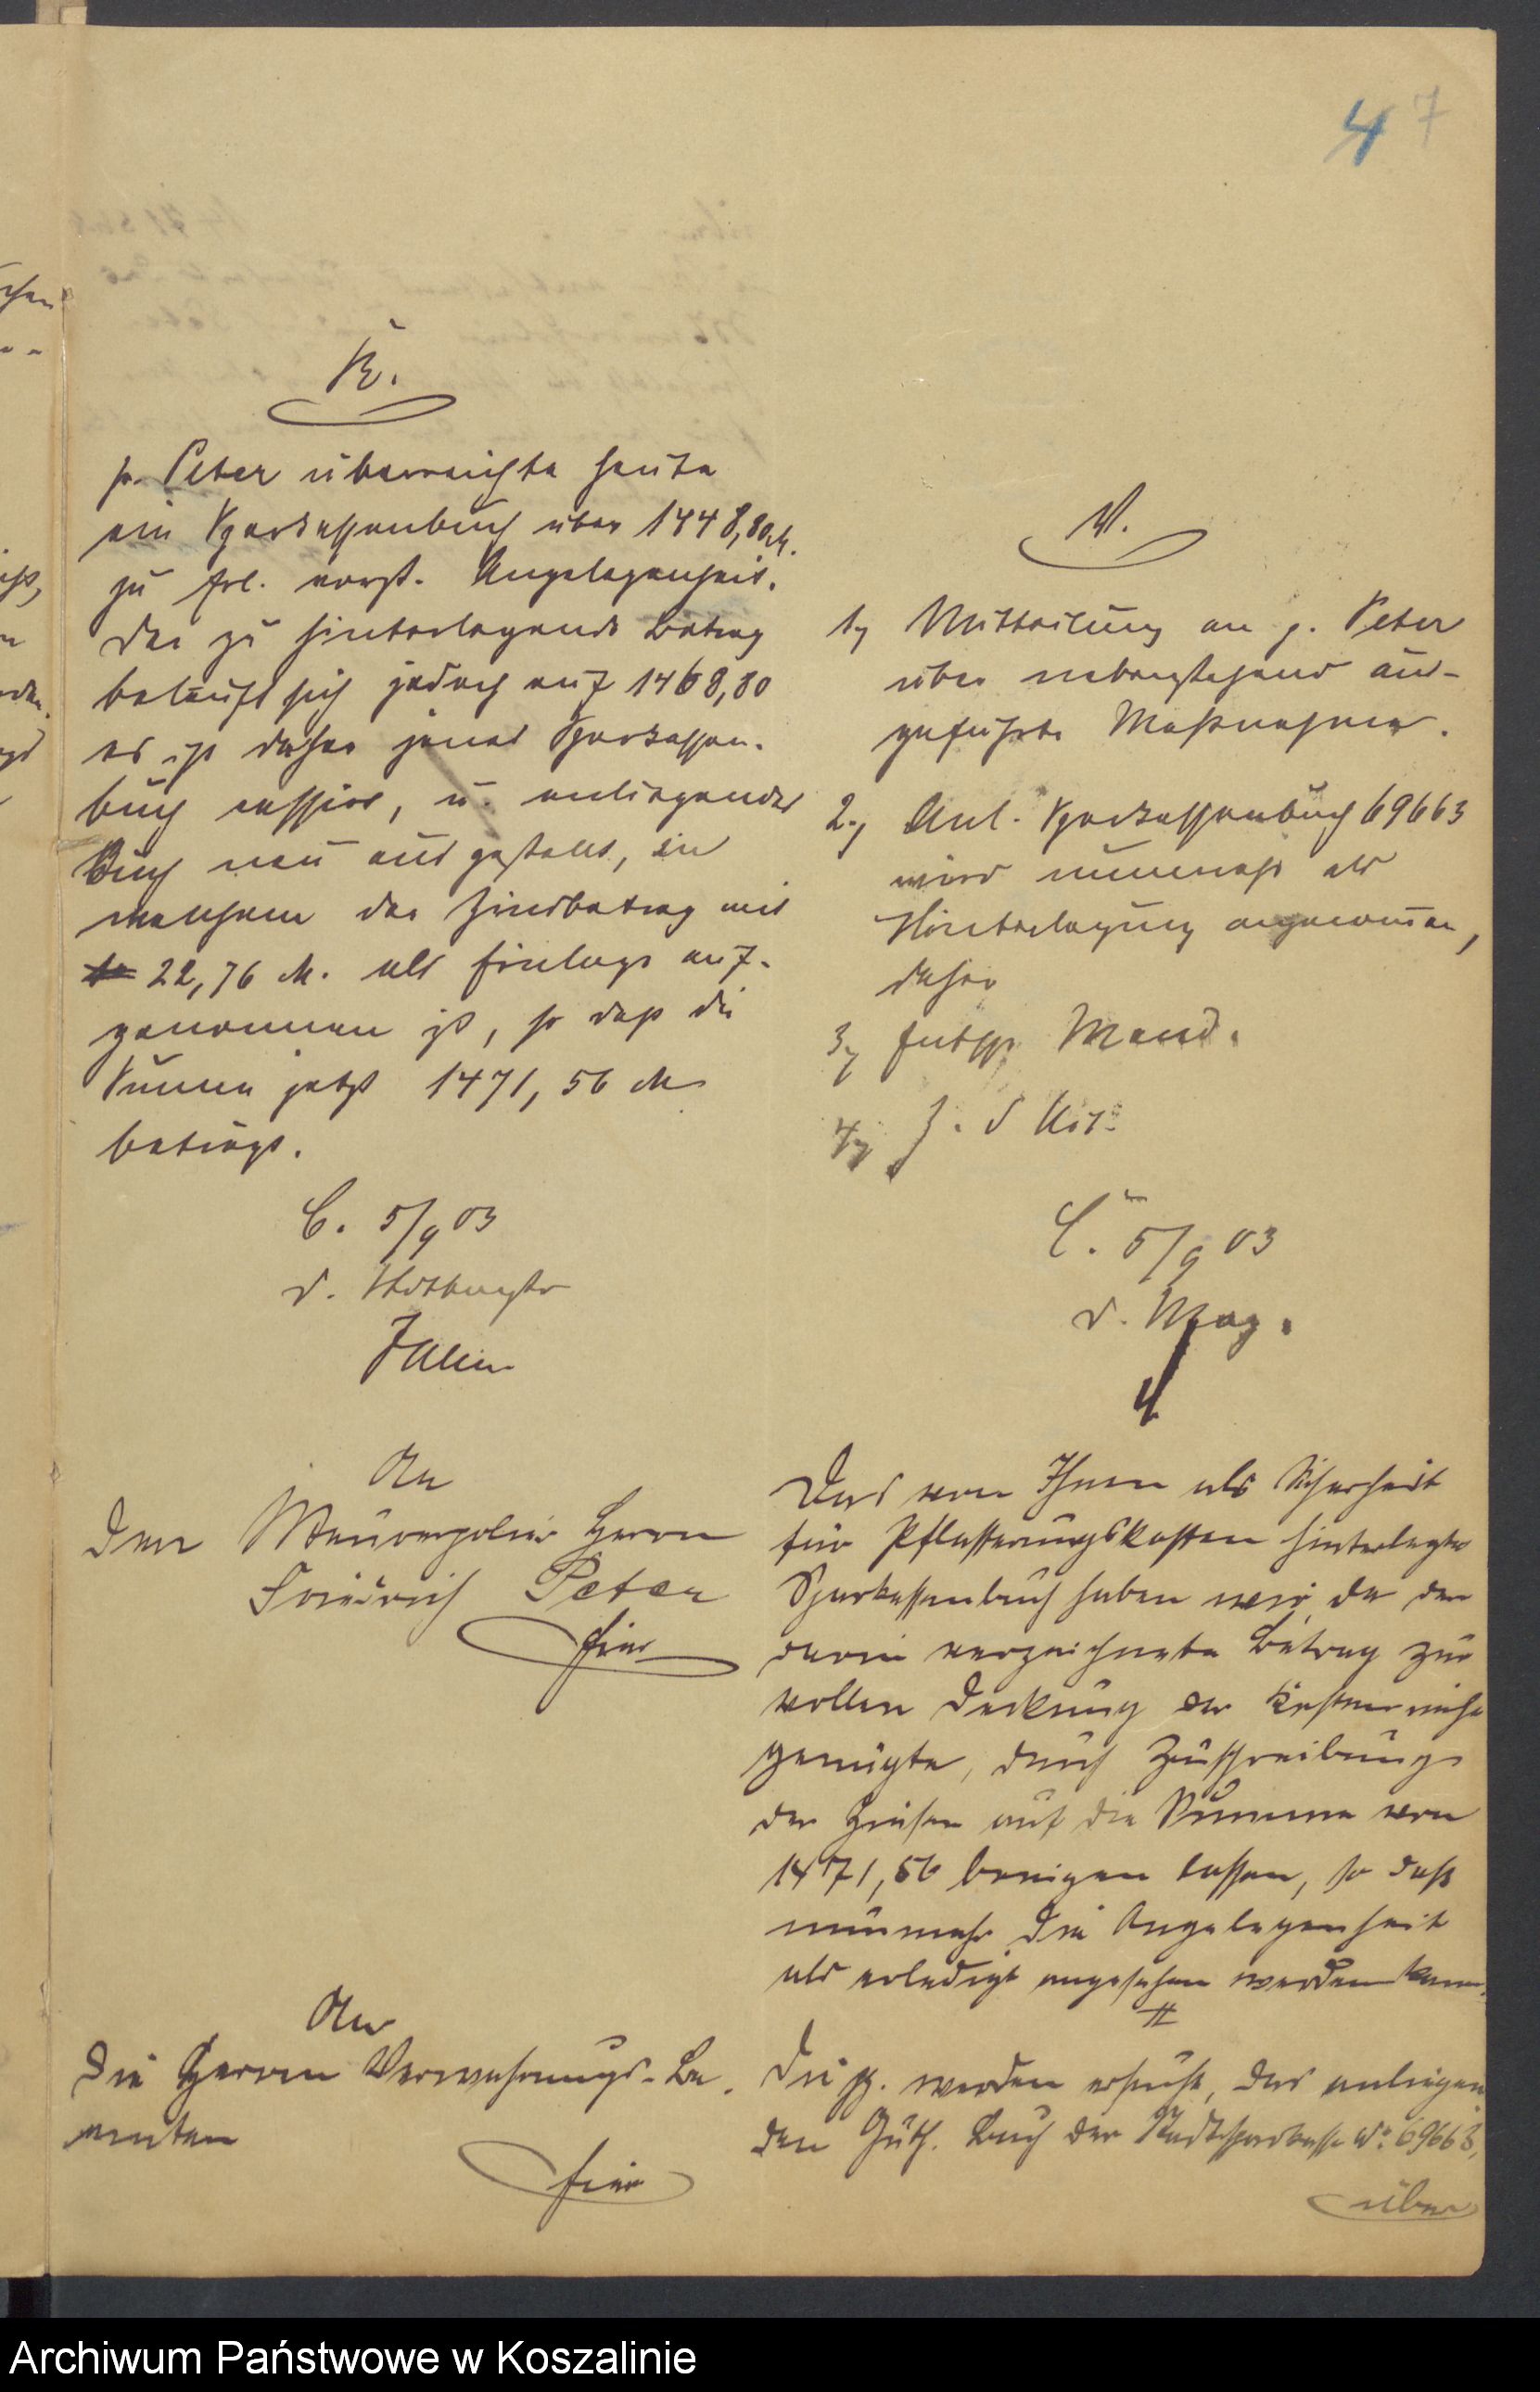 4 7
V.
p. Peter überreichte heute
ein Sparkassenbuch über 1448,80 M.
zu Erl. vorst. Angelegenheit.
Der zu hinterlegende Betrag
beläuft sich jedoch auf 1468,80
es ist daher jenes Sparkassen-
buch cassirt, u. anliegendes
Buch neu ausgestellt, in
welchem der Zinsbetrag mit
22,76 M. als Einlage auf-
genommen ist, so daß die
Summe jetzt 1471,56 M
beträgt.
C. 5/9 03
d.
V.
1, Mitteilung an p. Peter
über nebenstehend aus-
geführte Maßnahme.
2, Anl. Sparkassenbuch 69663
wird nunmehr als
Hinterlegung angenommen,
daher
3, Mand.
4, Z. d.
C. 5/9 03
d. Mag.
An
den Maurerpolier Herrn
Friedrich Peter
hier
Das von Ihnen als Sicherheit
für Pflasterungskosten hinterlegte
Sparkassenbuch haben wir, da der
darin verzeichnete Betrag zur
vollen Deckung der Kosten nicht
genügte, durch Zuschreibung
der Zinsen auf die Summe von
1471,56 bringen lassen, so daß
nunmehr die Angelegenheit
als erledigt angesehen werden kann.
An
die Herren Verwahrungs-Be-
amten
hier
Die pp. werden ersucht, das anliegen
den Guth. Buch der Stadtsparkasse No 69663,
über
Archiwum Państwowe w Koszalinie